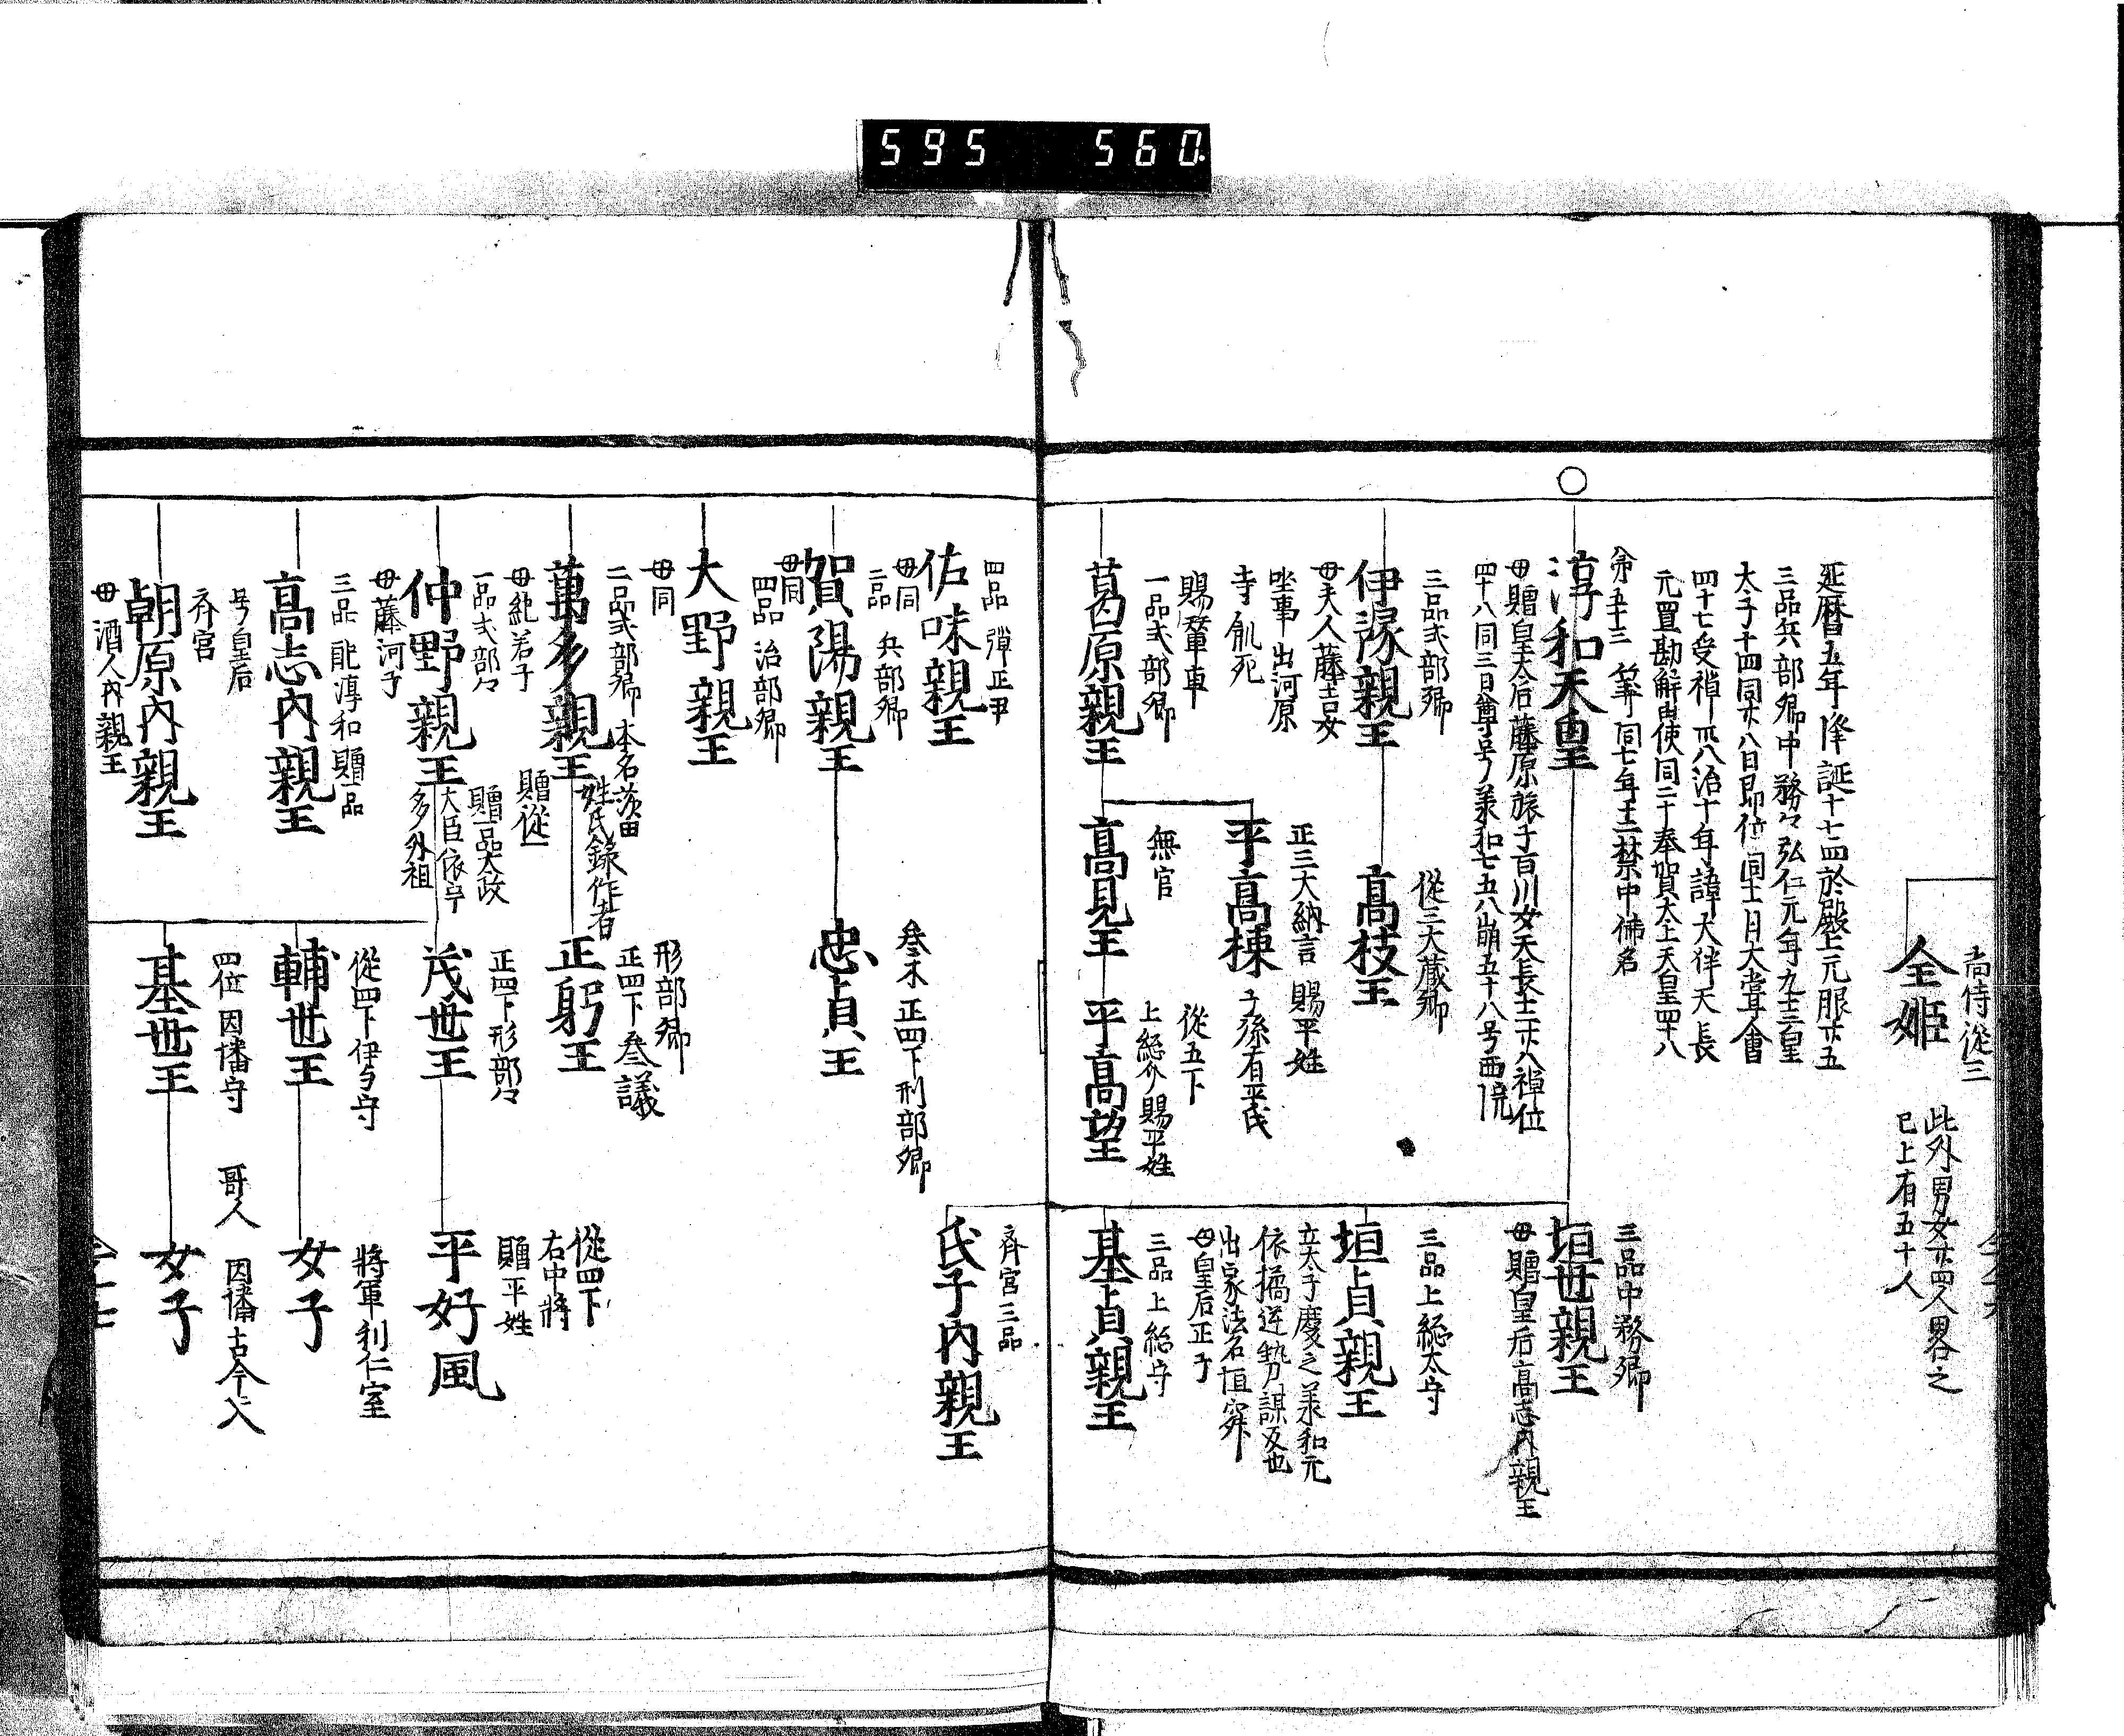 595 560
尚侍從三
全姫
此外男女廿四人畧之
已上有五十人
延暦五年降誕十七四於殿上元服廿五
三品兵部卿中務々弘仁元年九十三皇
太子十四同廿八日即位同十一月大嘗會
四十七受禅 治十年諱大伴天長
元置勘解由使同二十奉賀太上天皇四十八
第五十三 同七年 禁中佛名
淳和天皇
母贈皇太后藤原旅子百川女天長 廿八禅位
四十八同三日尊号 美和七五八崩五十八号西院
三品中務卿
垣世親王
母贈皇后高志内親王
三品上総太守
垣貞親王
立太子慶之美和元
依橘逆勢謀反也
出家法名恒
母皇后正子
三品上総守
基貞親王
齊宮三品
氏子内親王
三品式部卿
伊豫親王
母夫人藤吉女
坐事出河原
寺飢死
從三大蔵卿
高枝王
賜輦車
一品式部卿
葛原親王
正三大納言 賜平姓
平高棟
子孫有平氏
無官
高見王
從五下
上総介賜平姓
平高望
四品 弾正尹
佐味親王
母同
二品 兵部卿
賀陽親王
母同
叅木正四下刑部卿
忠貞王
四品 治部卿
大野親王
母同
二品式部卿 本名茨田
萬多親王
姓氏録作者
母紀若子
形部卿
正四下叅議
正躬王
贈從一
一品式部々
贈一品太政
仲野親王
大臣依宇
多外祖
母藤河子
正四下形部々
茂世王
從四下
右中将
贈平姓
平好風
從四下伊与守
輔世王
将軍利仁室
女子
四位 因幡守
基世王
哥人 因幡古今入
女子
三品 能淳和 贈一品
高志内親王
号皇后
齊宮
朝原内親王
母酒人内親王